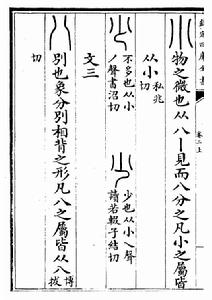 欽定四庫全書
卷二上
物之微也从八丨見而八分之凡小之屬皆
从小私兆切
不多也从小
丿聲書沼切
少也从小乀聲
讀若輟子結切
文三
別也象分別相背之形凡八之屬皆从八博拔
切